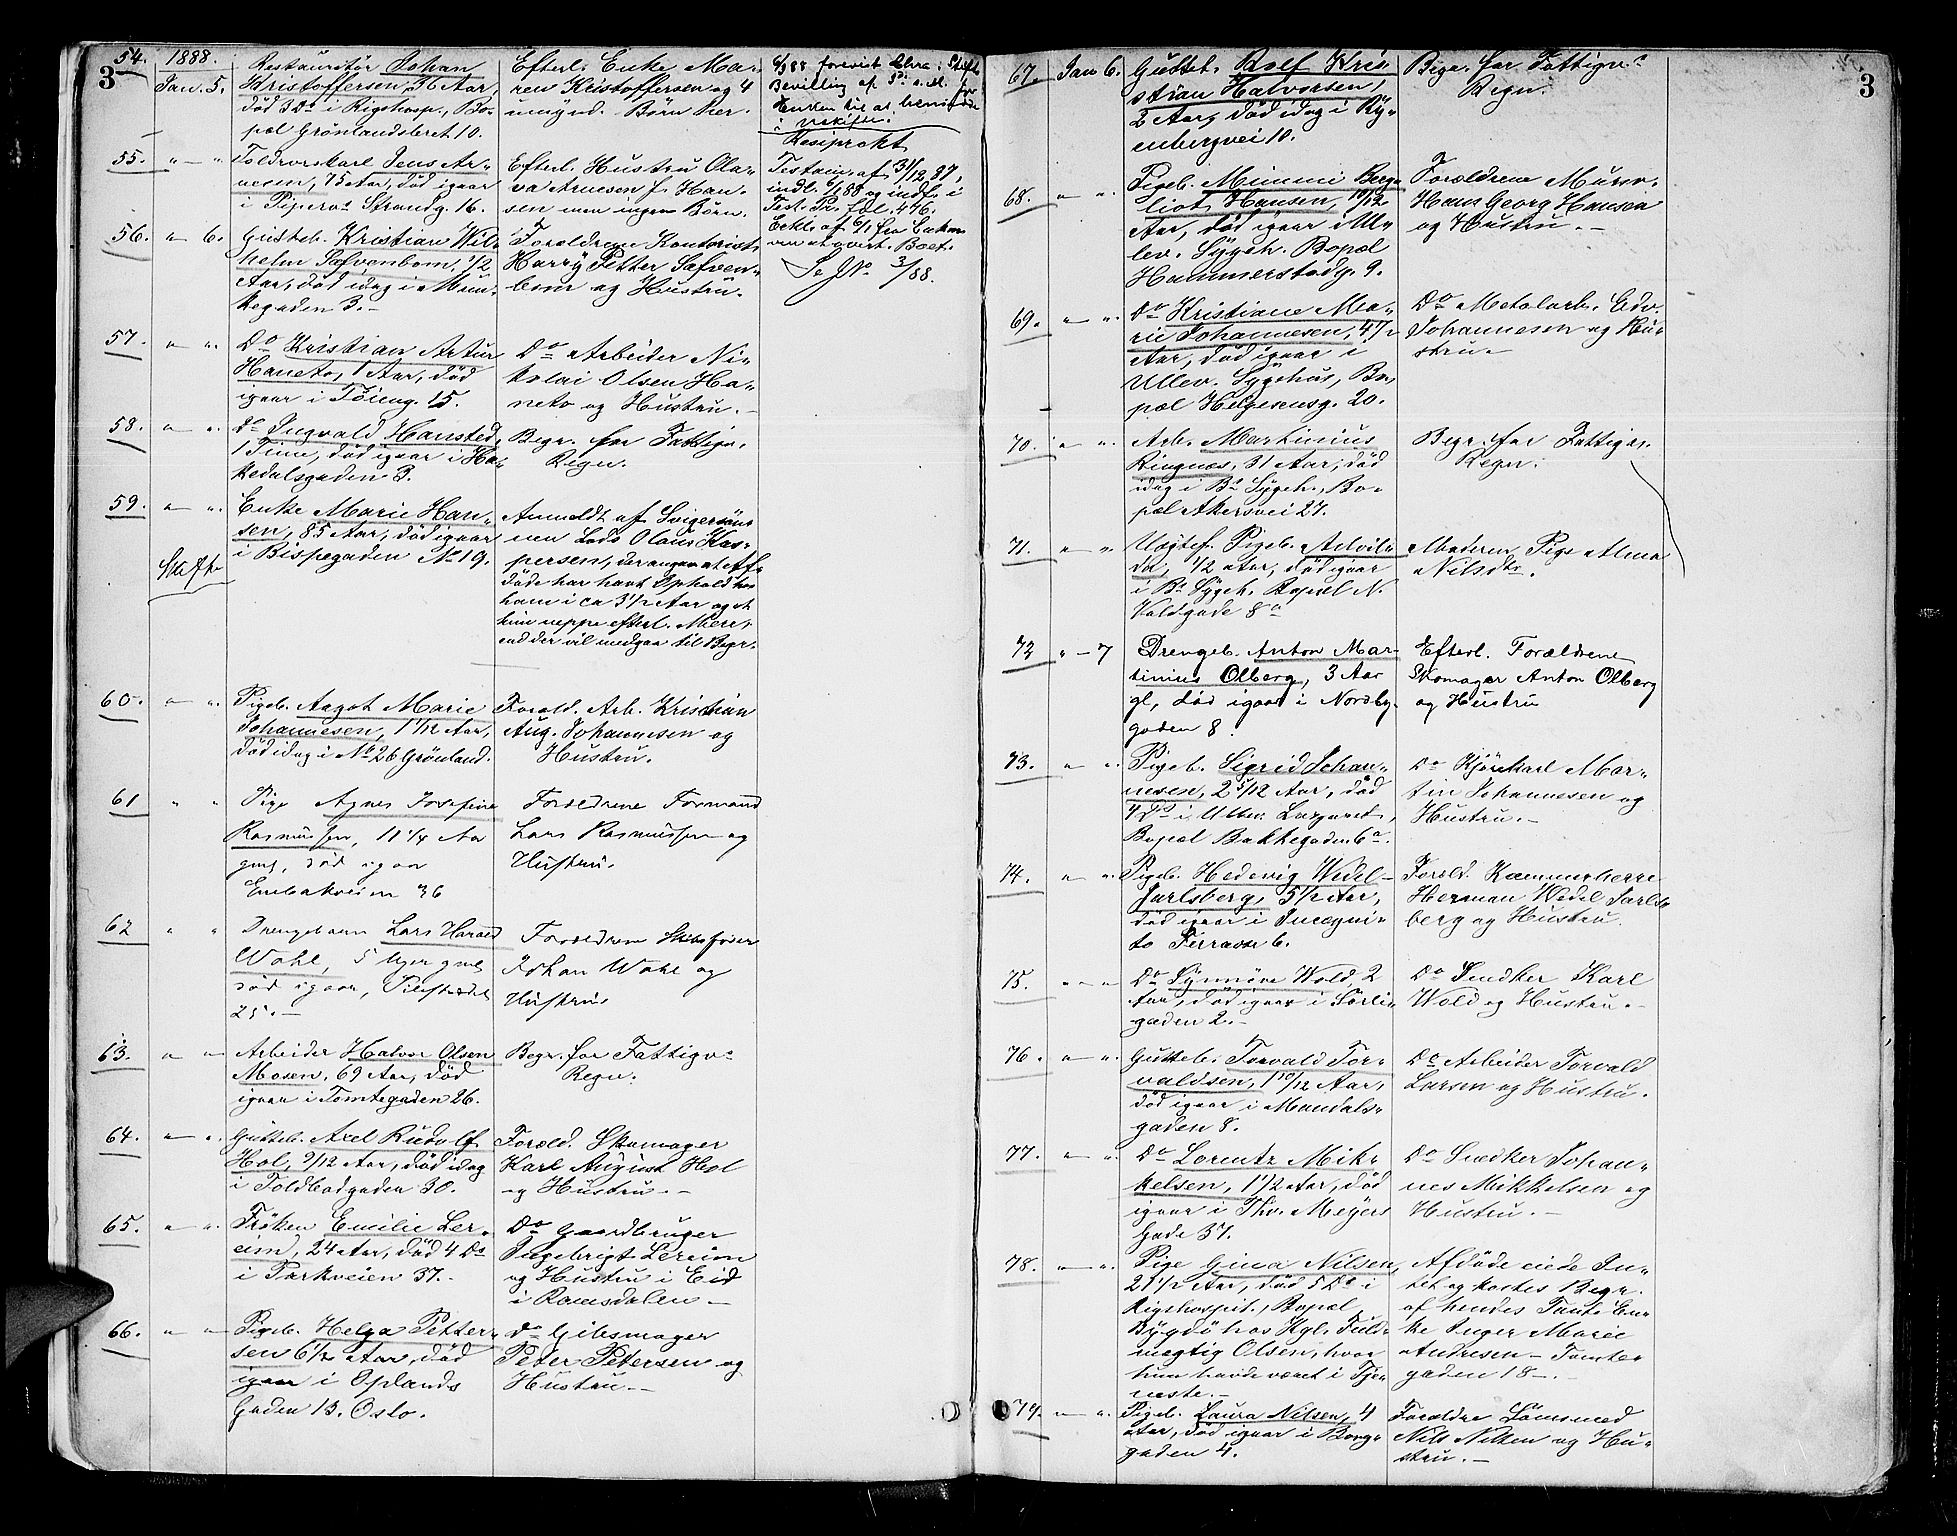 3
54. 1888.
Jan. 5.
Restauratör Johan
Kristoffersen, 36 Aar,
död 3 Ds i Rigshosp., Bo-
pæl Grönlandsleret 10.
Efterl. Enke Ma-
ren Kristoffersen og 4
umynd. Börn her.
Bevilling af
Enken til at hensidde
i uskiftet
55. " — "
Toldrorskarl Jens Ar-
nesen, 75 Aar, död igaar
i Pipervs Strandg. 16.
Efterl. Hustru Ola-
va Arnesen f. Han-
sen men ingen Börn.
Resiprokt
Testam. af 31/12 87,
indl. i
Test. Pr. fol. 476.
Se J No 3/88.
56. " — 6.
Gutteb. Kristian Wil-
helm Sæfvenbom, 1/2
Aar, död idag i Mun-
kegaden 3. —
Forældrene Kontorist
Harry Petter Sæfven-
bom og Hustru.
57. " — "
Do Kristian Artur
Haneto, 1 Aar, död
igaar i Töieng. 15.
Do Arbeider Ni-
kolai Olsen Ha-
neto og Hustru. —
58. " — "
Do Ingvald Hansted,
1 Time, död igaar i Ha-
kedalsgaden 3.
Begr. for Fattigv.
Regn.
59. " — "
Enke Marie Han-
sen, 85 Aar, död igaar
i Bispegaden No 19.
Anmeldt af Svigersön-
nen Lods Olaus Kas-
persen, der angav at Af-
döde har havt Ophold hos
ham i ca 3 1/2 Aar og at
hun neppe efterl. Mere,
end der vil medgaa til Begr.
60. " — "
Pigeb. Aagot Marie
Johannesen, 1 1/12 Aar,
död idag i No 26 Grönland.
Foræld. Arb. Kristian
Aug. Johannesen og
Hustru.
61 " "
Pige Agnes Josefine
Rasmussen, 11 1/4 Aar
gml, död igaar
Enebakveien 36
Forældrene Formand
Lars Rasmussen og
Hustru.
62 " "
Drengebarn Lars Harald
Wahl, 5 Uger gml
död igaar, Pilestrædet
25. —
Forældrene Skibsförer
Johan Wahl og
Hustru
63. " "
Arbeider Halvor Olsen
Mosen, 69 Aar, död
igaar i Tomtegaden 26.
Begr. for Fattigvs
Regn.
64. " — "
Gutteb. Axel Rudolf
Hol, 9/12 Aar, död idag
i Toldbodgaden 30.
Foræld. Skomager
Karl August Hol
og Hustru. —
65. " "
Fröken Emilie Ler-
eim, 24 Aar, död 4 Ds
i Parkveien 37. —
Do Gaardbruger
Ingebrigt Lereim
og Hustru i Eid
i Romsdalen. —
66. " "
Pigeb. Helga Petter-
sen 6 1/2 Aar, död
igaar i Oplands
Gaden 13. Oslo.
Do Gibsmager
Peter Petersen og
Hustru. —
3
67. Jan 6.
Gutteb. Rolf Kri-
stian Halvorsen,
2 Aar, död idag i Ry-
enbergvei 10.
Begr. for Fattigvs
Regn.
68. " "
Pigeb. Mimmi Berg-
liot Hansen, 10/12
Aar, död igaar i Ul-
lev. Sygeh. Bopæl
Hammerstadg. 9.
Forældrene Mursv.
Hans Georg Hansen
og Hustru. —
69. " "
Do Kristiane Ma-
rie Johannesen, 4 1/2
Aar, död igaar i
Ullev. Sygehus, Bo-
pæl Helgesensg. 20.
Do Metalarb. Edv.
Johannesen og Hu-
stru. —
70. " "
Arb. Martinius
Ringnes, 31 Aar, död
idag i Bs Sygeh., Bo-
pæl Akersvei 27.
Begr. for Fattigvs.
Regn.
71. " "
Uægtef. Pigeb. Astvil-
da, 1/2 Aar, död igaar
i Bs Sygeh. Bopæl N.
Voldgade 8a
Moderen Pige Alma
Nilsdtr.
72 " — 7
Drengeb. Anton Mar-
tinius Olberg, 3 Aar
gl, död igaar i Nordby-
gaden 8.
Efterl. Forældrene
Skomager Anton Olberg
og Hustru
73. " "
Pigeb. Sigrid Johan-
nesen, 2 5/12 Aar, död
4 Ds i Ullev. Lazaret,
Bopæl Bakkegaden 6a.
Do Kjörekarl Mar-
tin Johannesen og
Hustru. —
74. " "
Pigeb. Hedevig Wedel-
Jarlsberg, 5 1/2 Aar,
död igaar i Incogni-
to Terrasse 6.
Foræld. Kammerherre
Herman Wedel Jarls-
berg og Hustru.
75. " — "
Do Synnöve Wold, 2
Aar, död igaar i Sörli-
gaden 2. —
Do Snedker Karl
Wold og Hustru. —
76. " — "
Gutteb. Torvald Tor-
valdsen, 1 10/12 Aar,
död igaar i Mandals-
gaden 8.
Do Arbeider Torvald
Larsen og Hustru.
77. " — "
Do Lorentz Mik-
kelsen, 1 1/2 Aar, död
igaar i Thv. Meyers
Gade 37.
Do Snedker Johan-
nes Mikkelsen og
Hustru. —
78. " — "
Pige Gina Nilsen,
21 1/2 Aar, död 5 Ds i
Rigshospit., Bopæl
Bygdö hos Kgl. Fuld-
mægtig Olsen, hvor
hun havde været i Tje-
neste. —
Afdöde eiede In-
tet og kostes Begr.
af hendes Tante En-
ke Inger Marie
Andresen — Tomte-
gaden 18 —.
79. " — "
Pigeb. Laura Nilsen, 4
Aar, död igaar i Borg-
gaden 4.
Forældre Lönsmed
Nils Nilsen og Hu-
stru. —